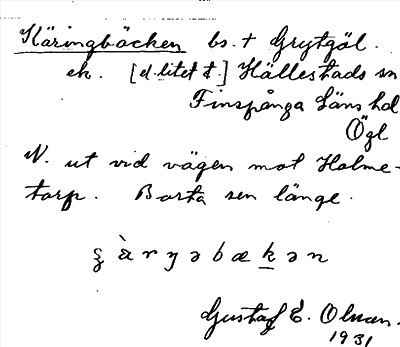 Käringbäcken bs. t Grytgöl.
ek. [el. litet t.] Hällestads sn
Finspånga Läns hd
Ögl
N. ut vid vägen mot Holme-
torp. Borta sen länge.
ȿàrŋəbækən
Gustaf E. Olman.
1931